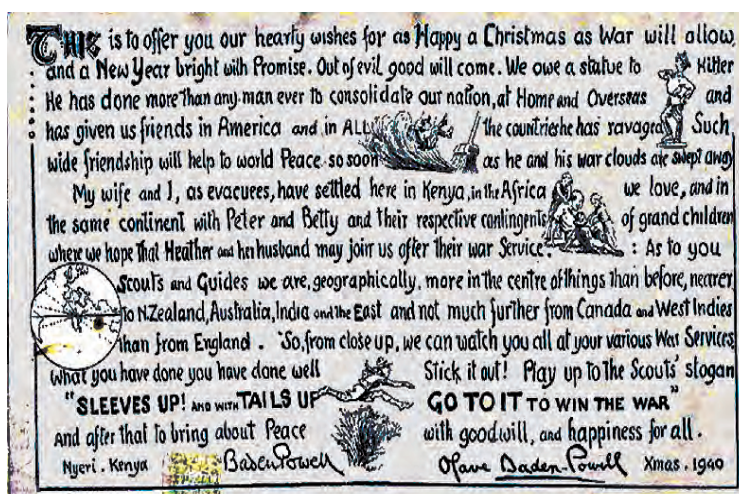 THIS is to offer you our hearty wishes for as Happy a Christmas as War will allow,
and a New Year bright with Promise. Out of evil good will come. We owe a statue to Hitler
He has done more than any man ever to consolidate our nation, at Home and Overseas and
has given us friends in America and in ALL the countries he has ravaged Such
wide friendship will help to world Peace so soon as he and his war clouds are swept away
My wife and I, as evacuees, have settled here in Kenya, in the Africa we love, and in
the same continent with Peter and Betty and their respective contingents of grand children
where we hope that Heather and her husband may join us after their war Service. : As to you
Scouts and Guides we are, geographically, more in the centre of things than before, nearer
to N.Zealand, Australia, India and the East and not much further from Canada and West Indies
than from England . So, from close up, we can watch you all at your various War Services,
what you have done you have done well Stick it out! Play up to the Scouts' slogan
"SLEEVES UP! AND WITH TAILS UP GO TO IT TO WIN THE WAR"
And after that to bring about Peace with goodwill, and happiness for all .
Nyeri . Kenya Baden Powell Olave Baden-Powell Xmas . 1940